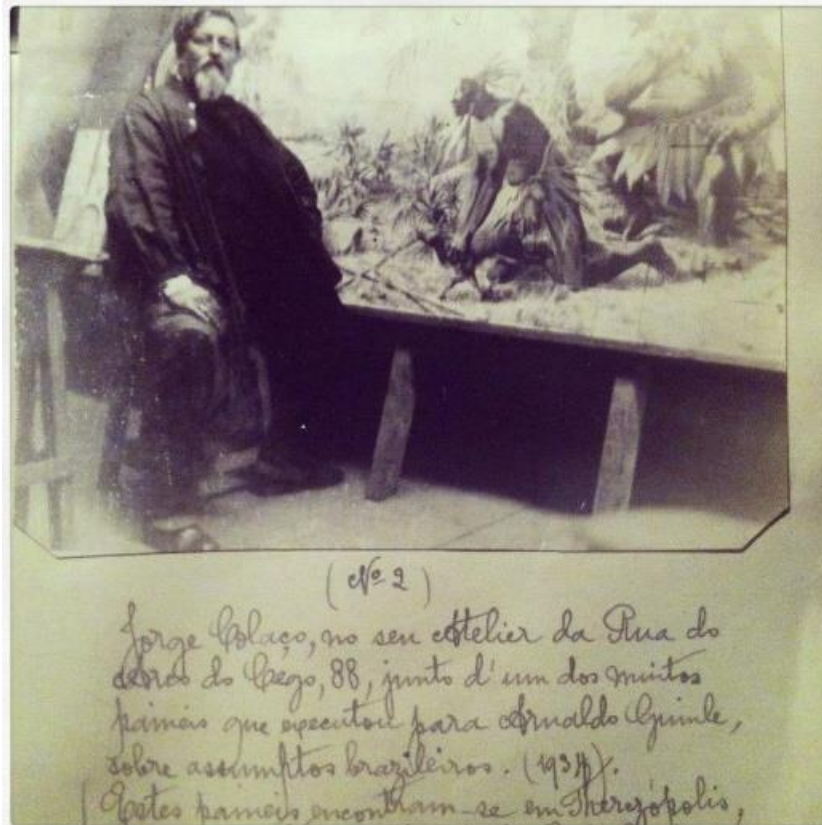 (Nº 2)
Jorge Colaço, no seu Atelier da Rua do
Arco do Cego, 88, junto d'um dos muitos
paineis que executou para Arnaldo Guinle,
sobre assumptos brazileiros. (1934).
(Estes paineis encontram-se em Therezópolis,